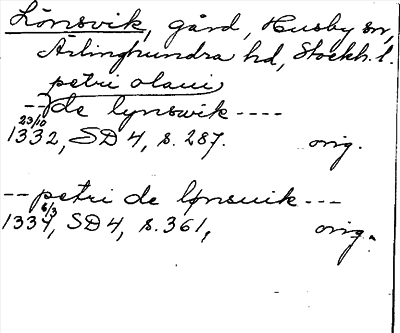 Lönsvik, gård, Husby sn,
Ärlinghundra hd, Stockh. l.
petri olaui
-- de lynswik ----
23/10
1332, SD 4, s. 287. orig.
-- petri de lønsuik ---
6/3
1334, SD 4, s. 361, orig.